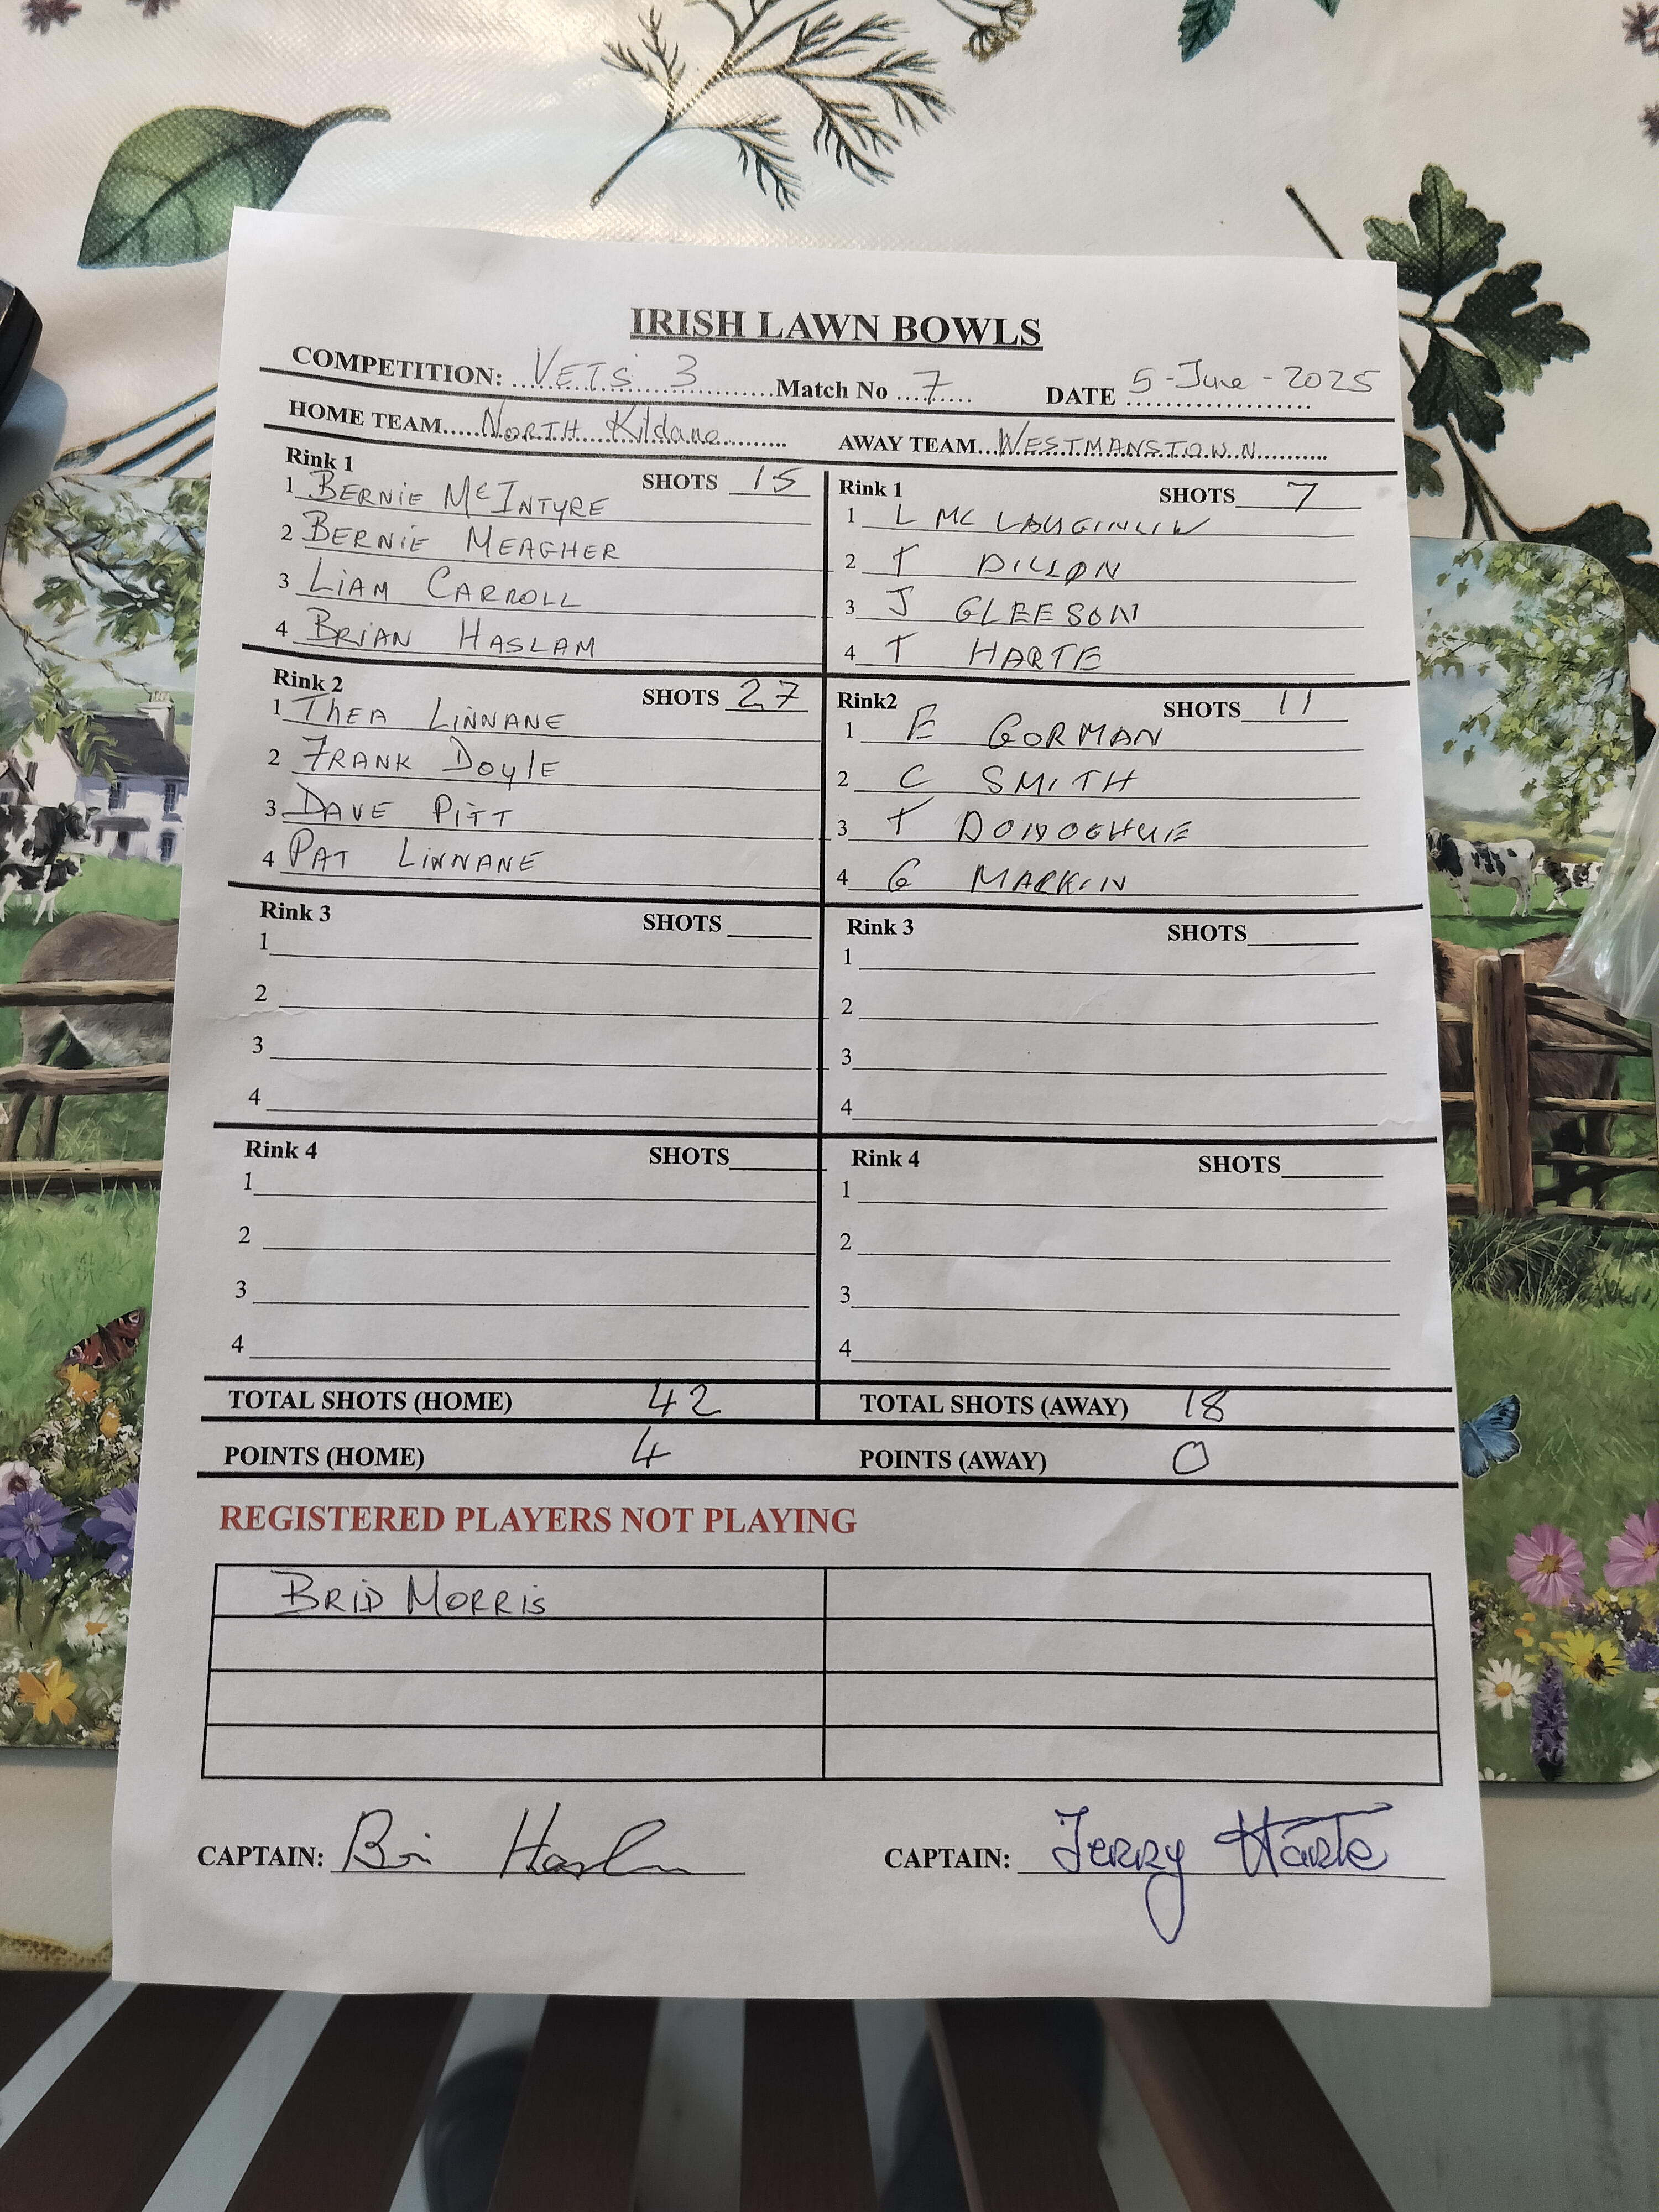 IRISH LAWN BOWLS
COMPETITION: VETS 3 Match No 7 DATE 5-June-2025
HOME TEAM North Kildare AWAY TEAM WESTMANSTOWN
Rink 1 SHOTS 15
1 BERNIE McINTYRE
2 BERNIE MEAGHER
3 LIAM CARROLL
4 BRIAN HASLAM
Rink 1 SHOTS 7
1 L MC LAUGINLIN
2 T DILLON
3 J GLEESON
4 T HARTE
Rink 2 SHOTS 27
1 THEA LINNANE
2 FRANK DOYlE
3 DAVE PITT
4 PAT LINNANE
Rink2 SHOTS 11
1 E GORMAN
2 C SMITH
3 T DONOGHUE
4 G MARKIN
Rink 3 SHOTS
1
2
3
4
Rink 3 SHOTS
1
2
3
4
Rink 4 SHOTS
1
2
3
4
Rink 4 SHOTS
1
2
3
4
TOTAL SHOTS (HOME) 42 TOTAL SHOTS (AWAY) 18
POINTS (HOME) 4 POINTS (AWAY) 0
REGISTERED PLAYERS NOT PLAYING
BRID MORRIS
CAPTAIN: Bri Haslam CAPTAIN: Terry Harte